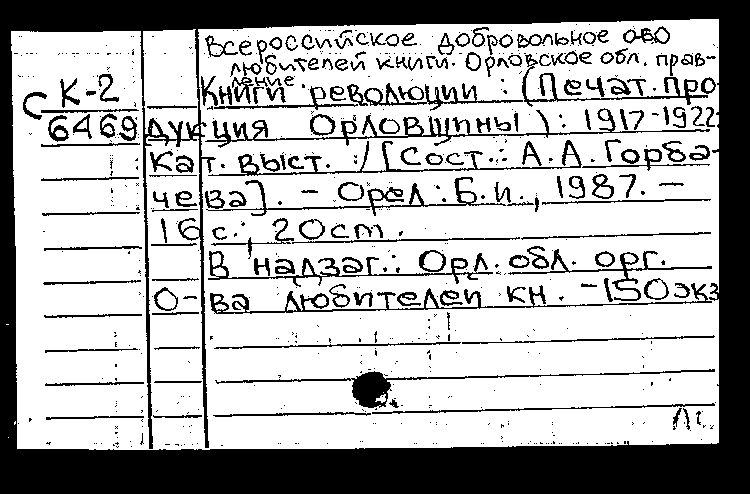 Всероссийское добровольное о-во
любителей книги. Орловское обл. прав-
ление
К-2
Книги революции : (Печат. про-
С 6469
дукция Орловщины) : 1917-1922:
Кат. выст. / [Сост.: А.А.Горба-
чева]. – Орел : Б.и., 1987. –
16 с.; 20 см.
В надзаг.: Орл. обл. орг.
о-ва любителей кн. – 150 экз